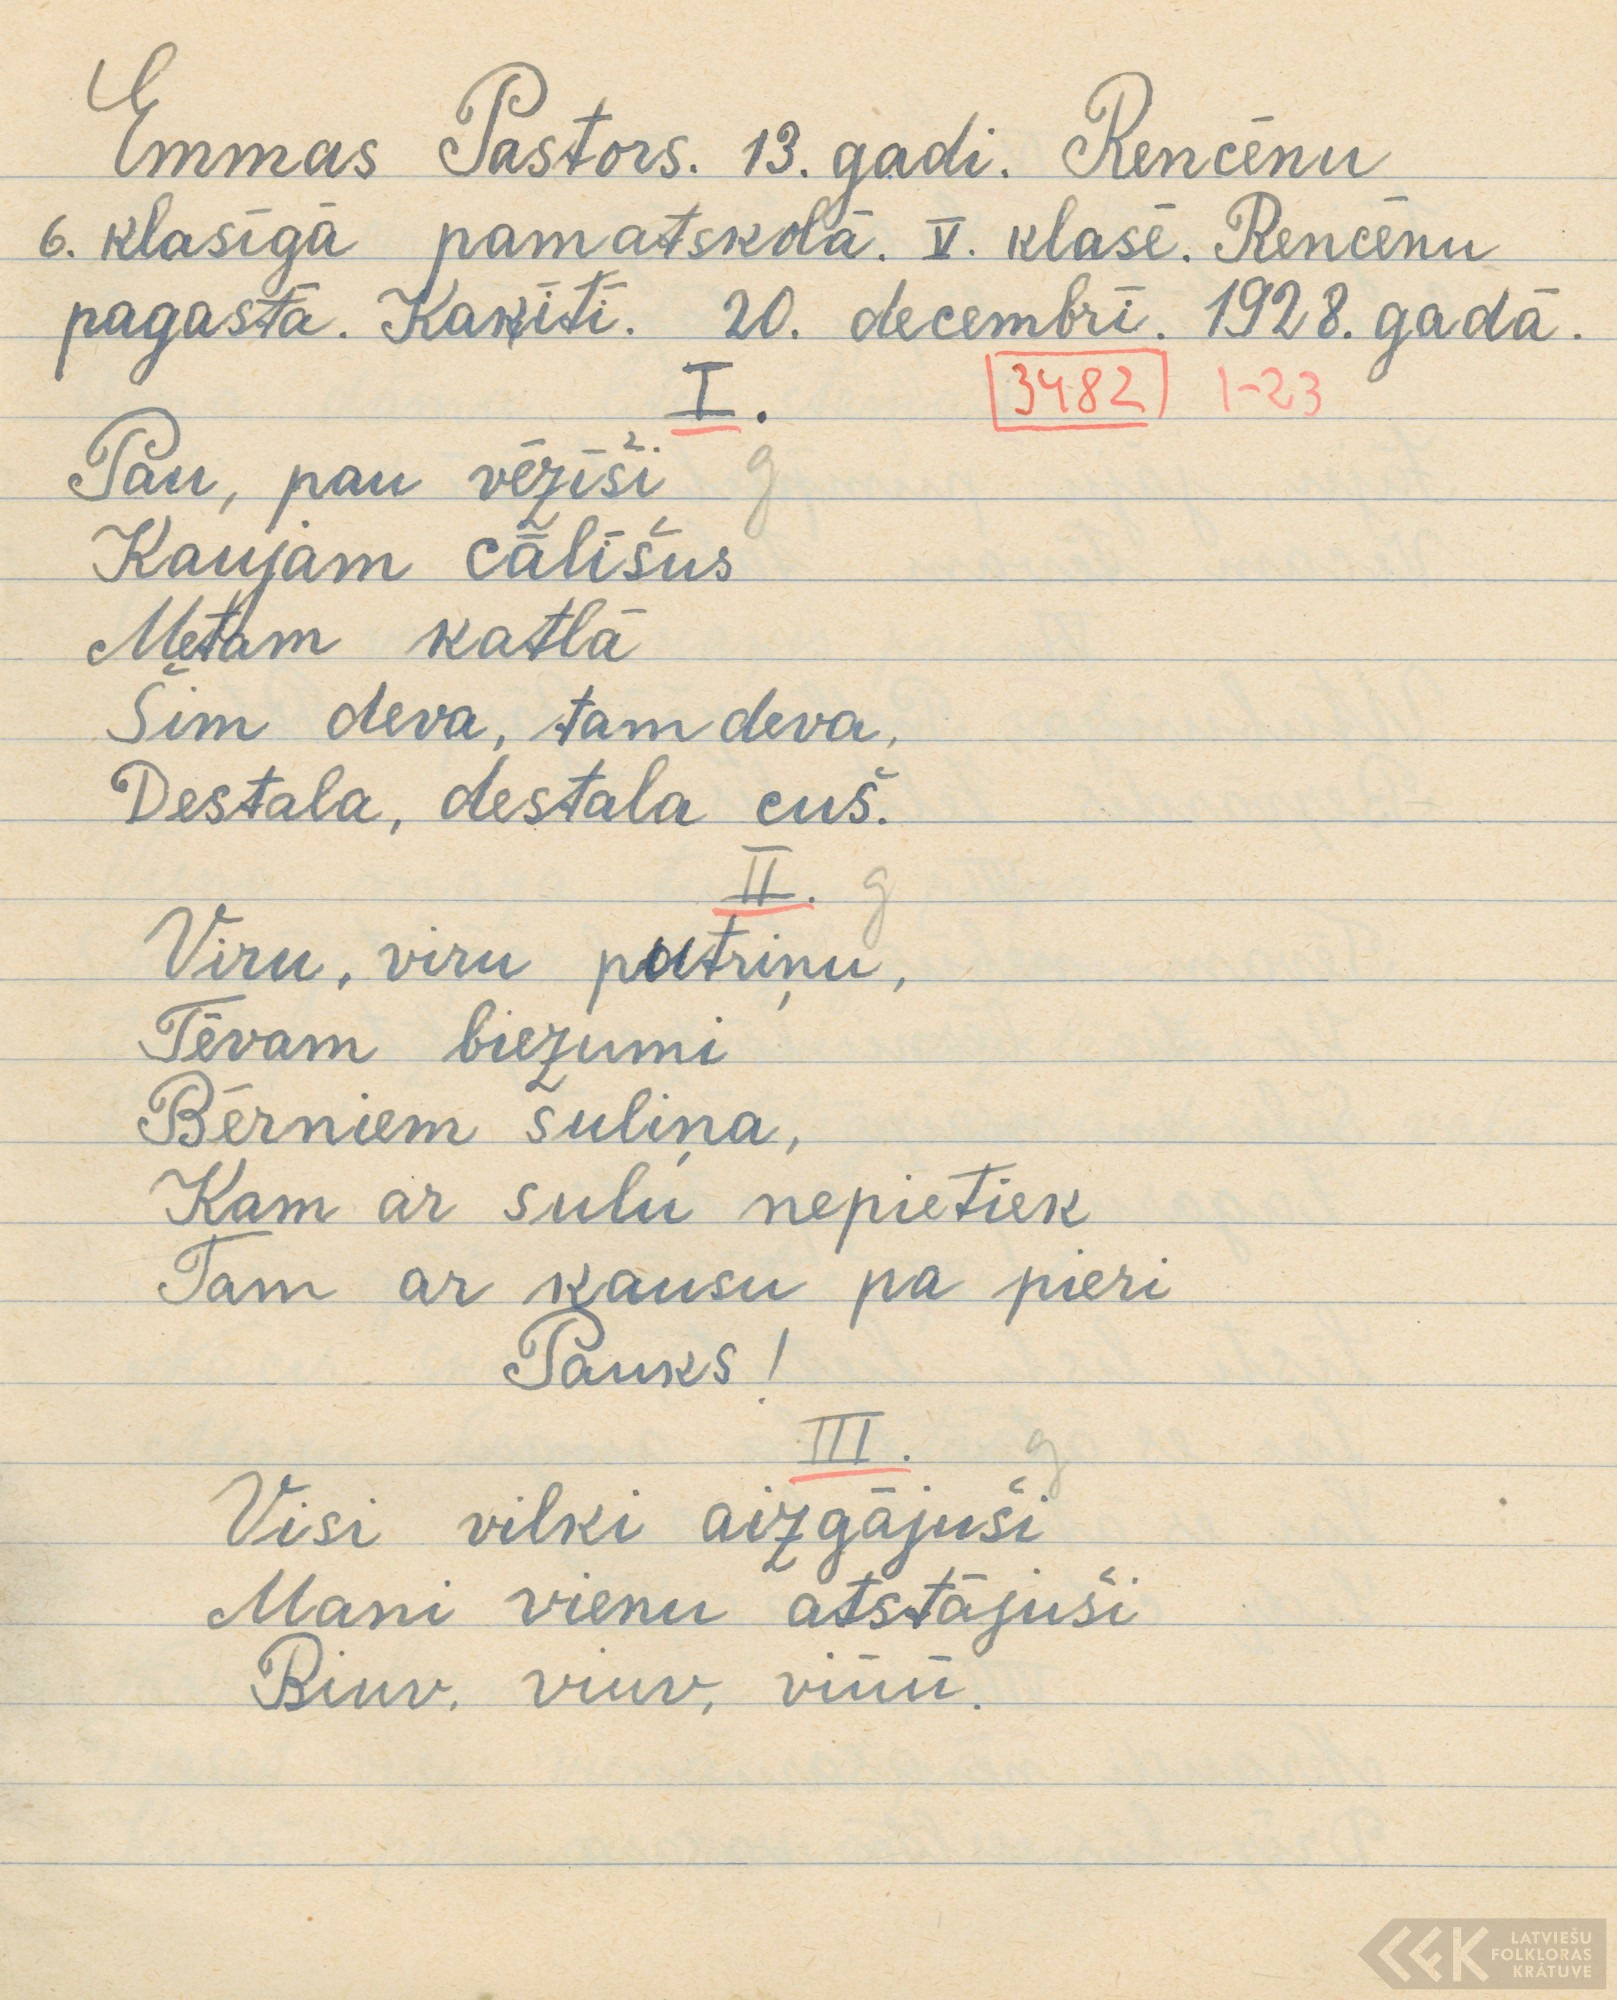 Emmas Pastors. 13. gadi. Rencēnu
6. klasīgā pamatskolā. V. klasē. Rencēnu
pagastā. Kaķīti. 20. decembrī. 1928. gadā.
I. 3482 1-23
Pau, pau vēzīši g
Kaujam cālīšus
Metam katlā
Šim deva, tam deva,
Destala, destala cuš.
II. g
Viru, viru putriņu,
Tēvam biezumi
Bērniem suliņa,
Kam ar sulu nepietiek
Tam ar kausu pa pieri
Pauks!
III. g
Visi vilki aizgājuši
Mani vienu atstājuši
Biuv, viuv, viūū.
LATVIEŠU
FOLKLORAS
KRĀTUVE